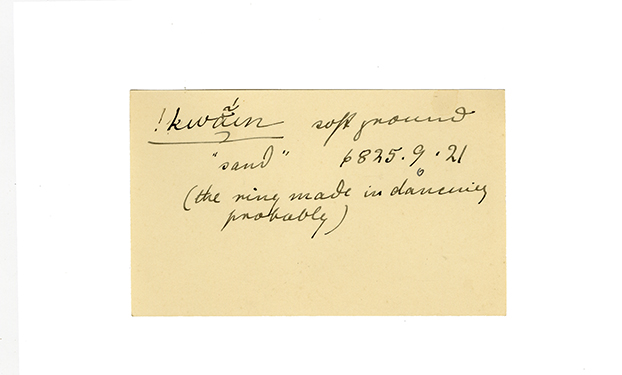 !kwã́in soft ground
"sand" 6825.9.21
(the ring made in dancing
probably)